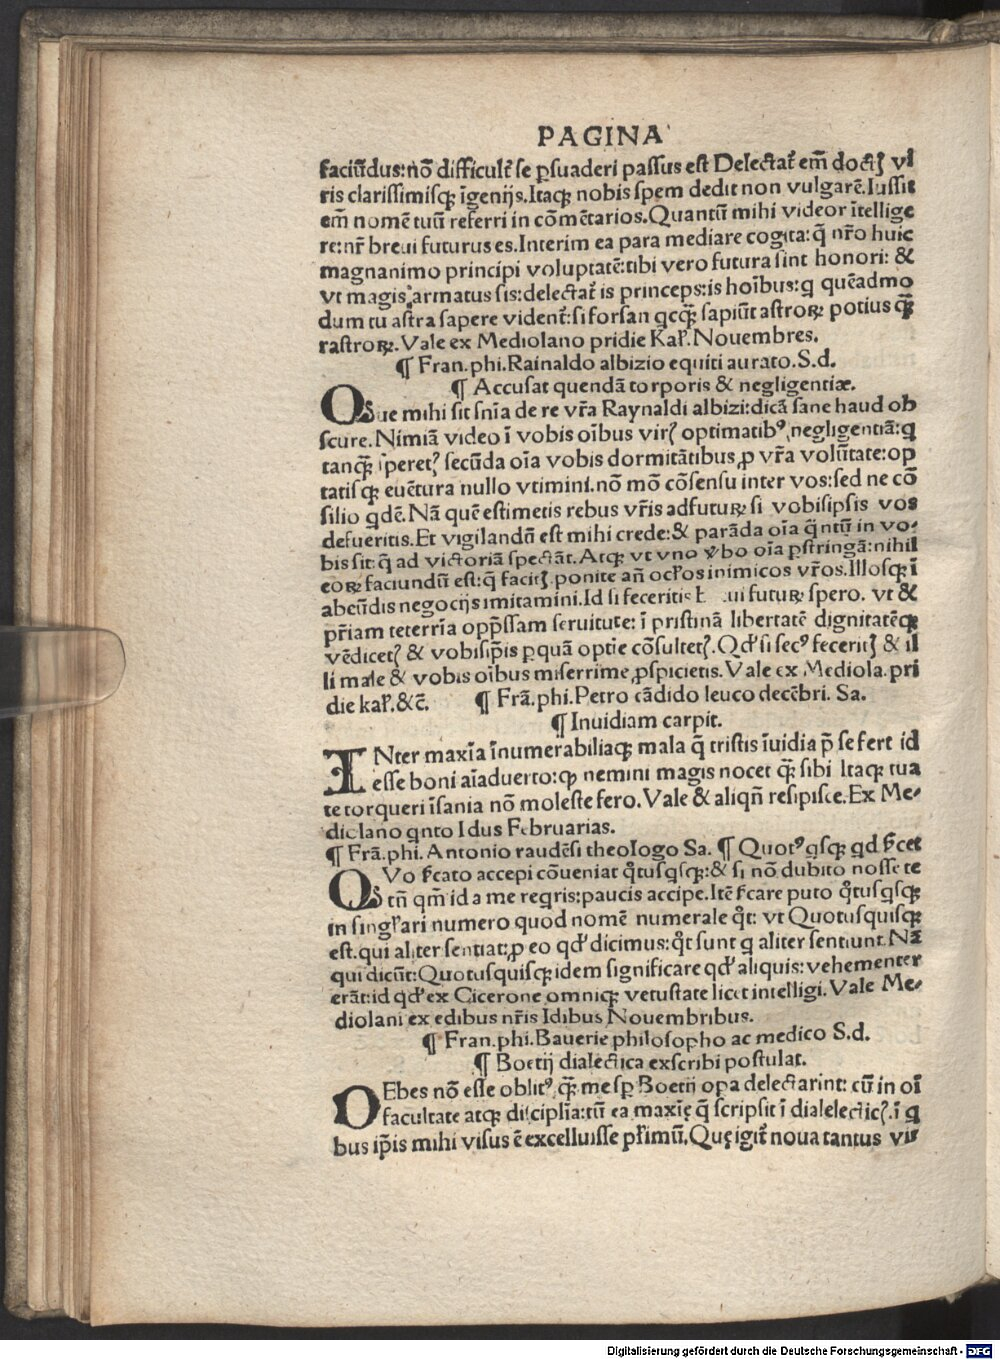 PAGINA
faciūdus:nō difficulť se ꝑsuaderi passus est Delectať em̄ doctꝭ vi
ris clarissimisqꝫ īgenijs.Itaqꝫ nobis spem dedit non vulgarē.Iussit
em̄ nomē tuū referri in cōmētarios.Quantū mihi videor ītellige
re:nr̄ breui futurus es.Interim ea para mediare cogita:q̄ nr̄o huic
magnanimo principi voluptatē:tibi vero futura sint honori: &
vt magis armatus sis:delectať is princeps:is hoībus:q quēadmo
dum tu astra sapere videnť:si forsan qcqꝫ sapiūt astroꝝ potius qꝫ̄
rastroꝝ.Vale ex Mediolano pridie Kaƚ.Nouembres.
¶ Fran.phi.Rainaldo albizio equiti aurato.S.d.
¶ Accusat quendā torporis & negligentiæ.
Que mihi sit snīa de re vr̄a Raynaldi albizi:dicā sane haud ob
scure.Nimiā video ī vobis oībus virꝭ optimatibꝰ negligentiā:q
tanqꝫ̄ īperetꝭ secūda oīa vobis dormitātibus,ꝓ vr̄a volūtate:op
tatisqꝫ euētura nullo vtimini.nō mō cōsensu inter vos:sed ne cō
silio qdē.Nā quē estimetis rebus vr̄is adfutuꝝ si vobisipsis vos
defueritis.Et vigilandū est mihi crede:& parāda oīa q̄ntū in vo-
bis sit:q̄ ad victoriā spectāt.Atqꝫ vt vno ꝟbo oīa ꝑstringā:nihil
eoꝝ faciundū est:q̄ facitꝭ ponite añ ocƚos inimicos vr̄os.Illosqꝫ ī
abcūdis negocijs imitamini.Id si feceritis ui futuꝝ spero. vt &
pr̄iam teterrīa opp̄ssam seruitute: ī pristinā libertatē dignitatēqꝫ
vēdicetꝭ & vobisip̄is ꝑquā optīe cōsultetꝭ.Qd' si secꝰ feceritꝭ & il
li male & vobis oībus miserrime ꝓspicietis.Vale ex Mediola.pri
die kaƚ.&c̄. ¶ Frā.phi.Petro cādido leuco decēbri. Sa.
¶ Inuidiam carpit.
INter maxīa īnumerabiliaqꝫ mala q̄ tristis īuidia p̄ se fert id
esse boni aīaduerto:qꝫ nemini magis nocet qꝫ̄ sibi Itaqꝫ tua
te torqueri īsania nō moleste fero.Vale & aliqn̄ resipisce.Ex Me-
diolano qnto Idus Februarias.
¶ Frā.phi.Antonio raudēsi theologo Sa. ¶ Quotꝰqsqꝫ qd f̄cet
QVo f̄cato accepi cōueniat q̊tusqsqꝫ:& si nō dubito nosse te
tn̄ qm̄ id a me reqris:paucis accipe.Itē f̄care puto q̊tusqsqꝫ
in singƚari numero quod nomē numerale q̊t: vt Quotusquisqꝫ
est.qui aliter sentiat:ꝓ eo qd' dicimus:q̊t sunt q aliter sentiunt.Nā
qui dicūt:Quotusquisqꝫ idem significare qd' aliquis:vehementer
erāt:id qd' ex Cicerone omniqꝫ vetustate licet intelligi.Vale Me-
diolani ex edibus nr̄is Idibus Nouembribus.
¶ Fran.phi.Bauerie philosopho ac medico S.d.
¶ Boetij dialectica exscribi postulat.
DEbes nō esse oblitꝰ qꝫ̄ me sꝑ Boetij opa delectarint: cū in oī
facultate atqꝫ disciplīa:tū ea maxīe q̄ scripsit ī dialelecticꝭ.ī q
bus ip̄is mihi visus ē excelluisse pƚimū.Quę igiť noua tantus vir
Digitalisierung gefördert durch die Deutsche Forschungsgemeinschaft - DFG